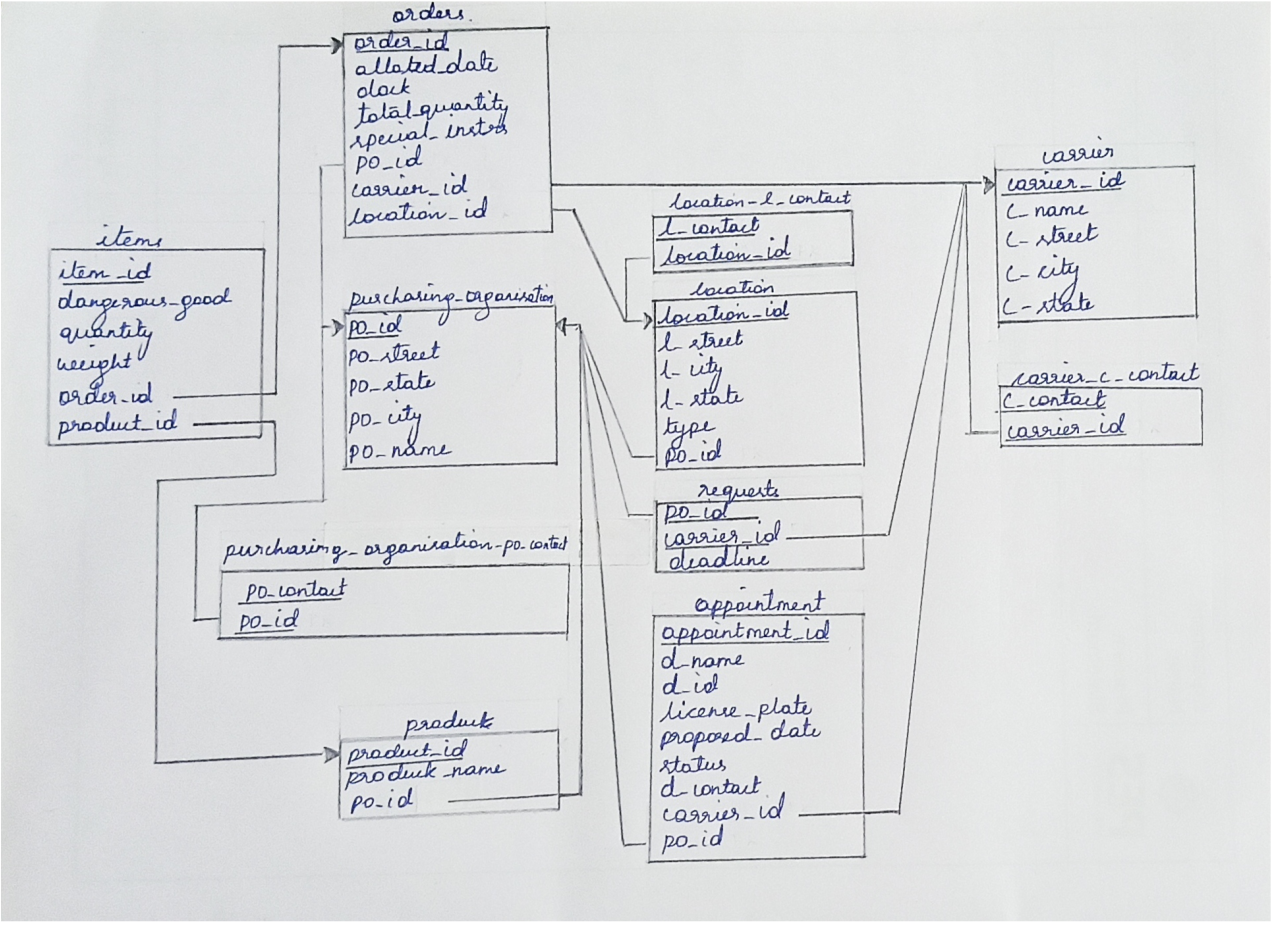 orders.
order_id
alloted_date
dock
total_quantity
special_instrs
po_id
carrier_id
location_id
items
item_id
dangerous_good
quantity
weight
order_id
product_id
purchasing_organisation
po_id
po_street
po_state
po_city
po_name
purchasing_organisation-po_contact
po_contact
po_id
product
product_id
product_name
po_id
location-l_contact
l_contact
location_id
location
location_id
l_street
l_city
l_state
type
po_id
requests
po_id
carrier_id
deadline
appointment
appointment_id
d_name
d_id
license_plate
proposed_date
status
d_contact
carrier_id
po_id
carrier
carrier_id
c_name
c_street
c_city
c_state
carrier_c_contact
c_contact
carrier_id